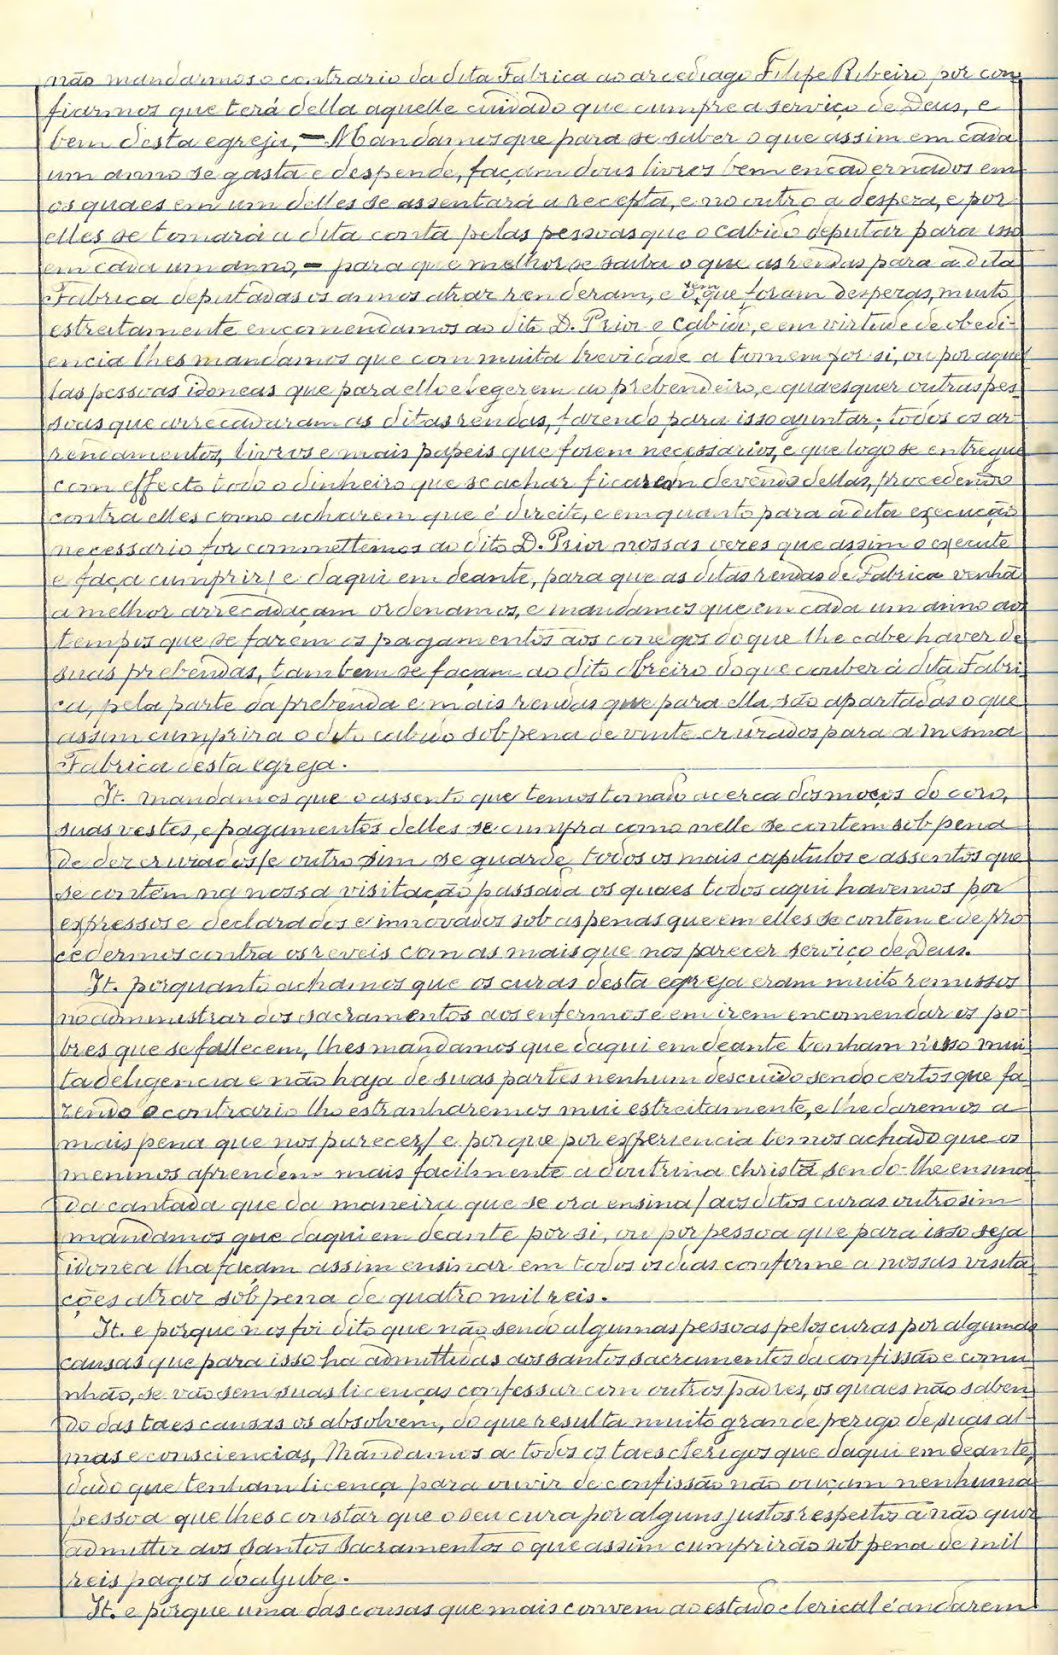 não mandarmos o contrario da dita Fabrica ao arcediago Filipe Ribeiro, por con-
fiarmos que terá della aquelle cuidado que cumpre a serviço de Deus, e
bem desta egreja, — Mandamos que para se saber o que assim em cada
um anno se gasta e despende, façam dous livros bem encadernados em
os quaes em um delles se assentará a recepta, e no outro a despeza, e por
elles se tomará a dita conta pelas pessoas que o cabido deputar para isso
em cada um anno, — para que melhor se saiba o que as rendas para a dita
Fabrica deputadas os annos atraz renderam, e o em que foram despezas, muito
estreitamente encomendamos ao dito D. Prior e Cabido, e em virtude de obedi-
encia lhes mandamos que com muita brevidade a tomem por si, ou por aquel-
las pessoas idoneas que para ello elegerem ao prebendeiro, e quaesquer outras pes-
soas que arrecadaram as ditas rendas, fazendo para isso ajuntar; todos os ar-
rendamentos, livros e mais papeis que forem necessarios, e que logo se entregue
com effecto todo o dinheiro que se achar ficarem devendo dellas, procedendo
contra elles como acharem que é direito, e emquanto para a dita execução
necessario for commettemos ao dito D. Prior nossas vezes que assim o execute
e faça cumprir/ e daqui em deante, para que as ditas rendas de Fabrica venhã
a melhor arrecadaçam ordenamos, e mandamos que em cada um anno aos
tempos que se fazem os pagamentos aos conegos do que lhe cabe haver de
suas prebendas, tambem se façam ao dito obreiro do que couber á dita Fabri-
ca, pela parte da prebenda e mais rendas que para ella são apartadas o que
assim cumprira o dito cabido sob pena de vinte cruzados para a mesma
Fabrica desta egreja.
It. mandamos que o assento que temos tomado acerca dos moços do coro,
suas vestes, e pagamentos delles se cumpra como nelle se contem sob pena
de dez cruzados/ e outro sim se guarde todos os mais capitulos e assentos que
se contêm na nossa visitação passada os quaes todos aqui havemos por
expressos e declarados e innovados sob as penas que em elles se contem e de pro-
cedermos contra os reveis com as mais que nos parecer serviço de Deus.
It. porquanto achamos que os curas desta egreja eram muito remissos
no administrar dos sacramentos aos enfermos e em irem encomendar os po-
bres que se fallecem, lhes mandamos que daqui em deante tenham n'isso mui-
ta deligencia e não haja de suas partes nenhum descuido sendo certos que fa-
zendo o contrario lho estranharemos mui estreitamente, e lhe daremos a
mais pena que nos parecer/ e porque por experiencia temos achado que os
meninos aprendem mais facilmente a doutrina christã sendo-lhe ensina-
da cantada que da maneira que se ora ensina/ aos ditos curas outrosim
mandamos que daqui em deante por si, ou por pessoa que para isso seja
idonea lha façam assim ensinar em todos os dias conforme a nossas visita-
ções atraz sob pena de quatro mil reis.
It. e porque nos foi dito que não sendo algumas pessoas pelos curas por algumas
causas que para isso ha admittidas aos santos sacramentos da confissão e comu-
nhão, se vão sem suas licenças confessar com outros padres, os quaes não saben-
do das taes causas os absolvem, do que resulta muito grande perigo de suas al-
mas e consciencias, Mandamos a todos os taes clerigos que daqui em deante,
dado que tenham licença para ouvir de confissão não ouçam nenhuma
pessoa que lhes constar que o seu cura por alguns justos respeitos a não quer
admittir aos Santos Sacramentos o que assim cumprirão sob pena de mil
reis pagos do aljube.
It. e porque uma das cousas que mais convem ao estado clerical é andarem